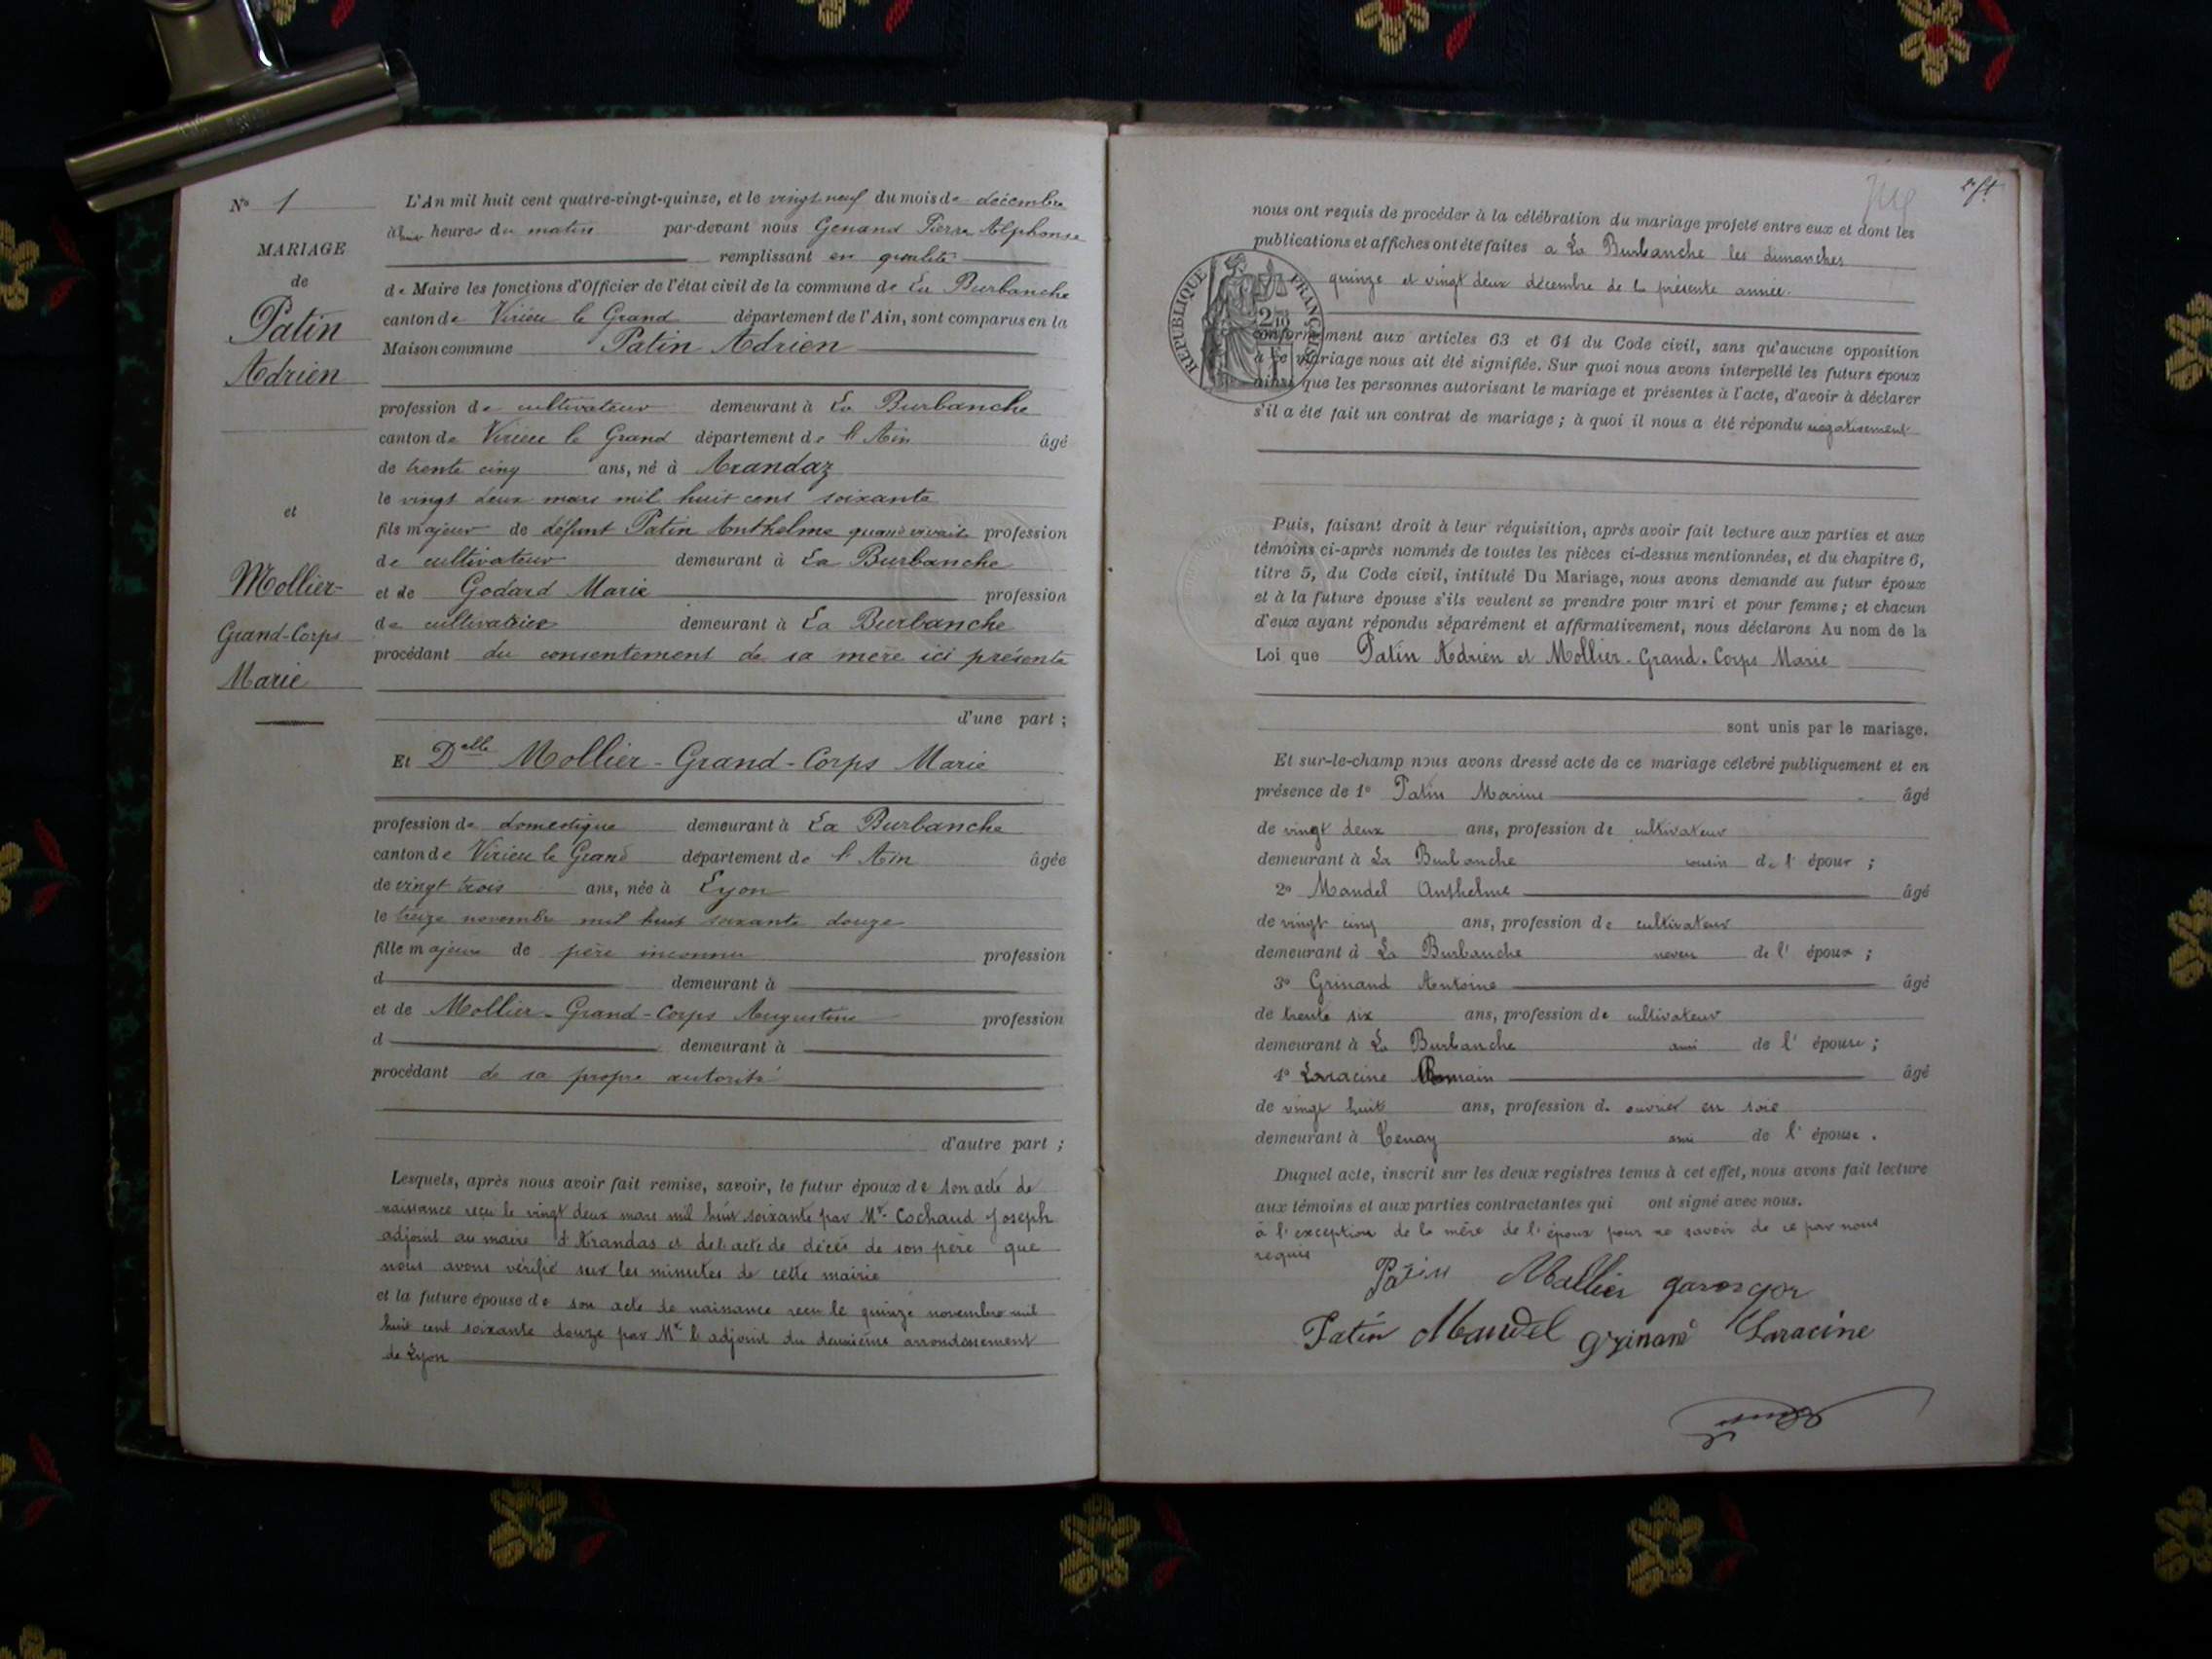 N° 1
MARIAGE
de
Patin
Adrien
et
Mollier-
Grand-Corps
Marie
L'An mil huit cent quatre-vingt-quinze, et le vingt neuf du mois de décembre
à huit heures du matin par-devant nous Genand Pierre Alphonse
remplissant en qualité
de Maire les fonctions d'Officier de l'état civil de la commune de La Burbanche
canton de Virieu le Grand département de l'Ain, sont comparus en la
Maison commune Patin Adrien
profession de cultivateur demeurant à La Burbanche
canton de Virieu le Grand département de l'Ain âgé
de trente cinq ans, né à Arandaz
le vingt deux mars mil huit cent soixante
fils majeur de défunt Patin Anthelme quand vivait profession
de cultivateur demeurant à La Burbanche
et de Godard Marie profession
de cultivatrice demeurant à La Burbanche
procédant du consentement de sa mère ici présente
d'une part ;
Et Delle Mollier-Grand-Corps Marie
profession de domestique demeurant à La Burbanche
canton de Virieu le Grand département de l'Ain âgée
de vingt trois ans, née à Lyon
le treize novembre mil huit soixante douze
fille majeure de père inconnu profession
d demeurant à
et de Mollier-Grand-Corps Augustine profession
d demeurant à
procédant de sa propre autorité
d'autre part ;
Lesquels, après nous avoir fait remise, savoir, le futur époux de son acte de
naissance reçu le vingt deux mars mil huit soixante par Mr Cochaud Joseph
adjoint au maire d'Arandas et del acte de décès de son père que
nous avons vérifié sur les minutes de cette mairie
et la future épouse de son acte de naissance reçu le quinze novembre mil
huit cent soixante douze par Mr l'adjoint du deuxième arrondissement
de Lyon
nous ont requis de procéder à la célébration du mariage projeté entre eux et dont les
publications et affiches ont été faites a La Burbanche les dimanches
quinze et vingt deux décembre de la présente année.
RÉPUBLIQUE FRANÇAISE
conformément aux articles 63 et 64 du Code civil, sans qu'aucune opposition
à ce mariage nous ait été signifiée. Sur quoi nous avons interpellé les futurs époux
ainsi que les personnes autorisant le mariage et présentes à l'acte, d'avoir à déclarer
s'il a été fait un contrat de mariage ; à quoi il nous a été répondu négativement
Puis, faisant droit à leur réquisition, après avoir fait lecture aux parties et aux
témoins ci-après nommés de toutes les pièces ci-dessus mentionnées, et du chapitre 6,
titre 5, du Code civil, intitulé Du Mariage, nous avons demandé au futur époux
et à la future épouse s'ils veulent se prendre pour mari et pour femme ; et chacun
d'eux ayant répondu séparément et affirmativement, nous déclarons Au nom de la
Loi que Patin Adrien et Mollier-Grand-Corps Marie
sont unis par le mariage.
Et sur-le-champ nous avons dressé acte de ce mariage célébré publiquement et en
présence de 1° Patin Marius âgé
de vingt deux ans, profession de cultivateur
demeurant à La Burbanche cousin de l'époux ;
2° Mandel Anthelme âgé
de vingt cinq ans, profession de cultivateur
demeurant à La Burbanche neveu de l'époux ;
3° Grinand Antoine âgé
de trente six ans, profession de cultivateur
demeurant à La Burbanche ami de l'épouse ;
4° Laracine Romain âgé
de vingt huit ans, profession de ouvrier en soie
demeurant à Tenay ami de l'épouse .
Duquel acte, inscrit sur les deux registres tenus à cet effet, nous avons fait lecture
aux témoins et aux parties contractantes qui ont signé avec nous.
à l'exception de la mère de l'époux pour ne savoir de ce par nous
requis
Patin Mallier
Patin Mandel Grinand Laracine